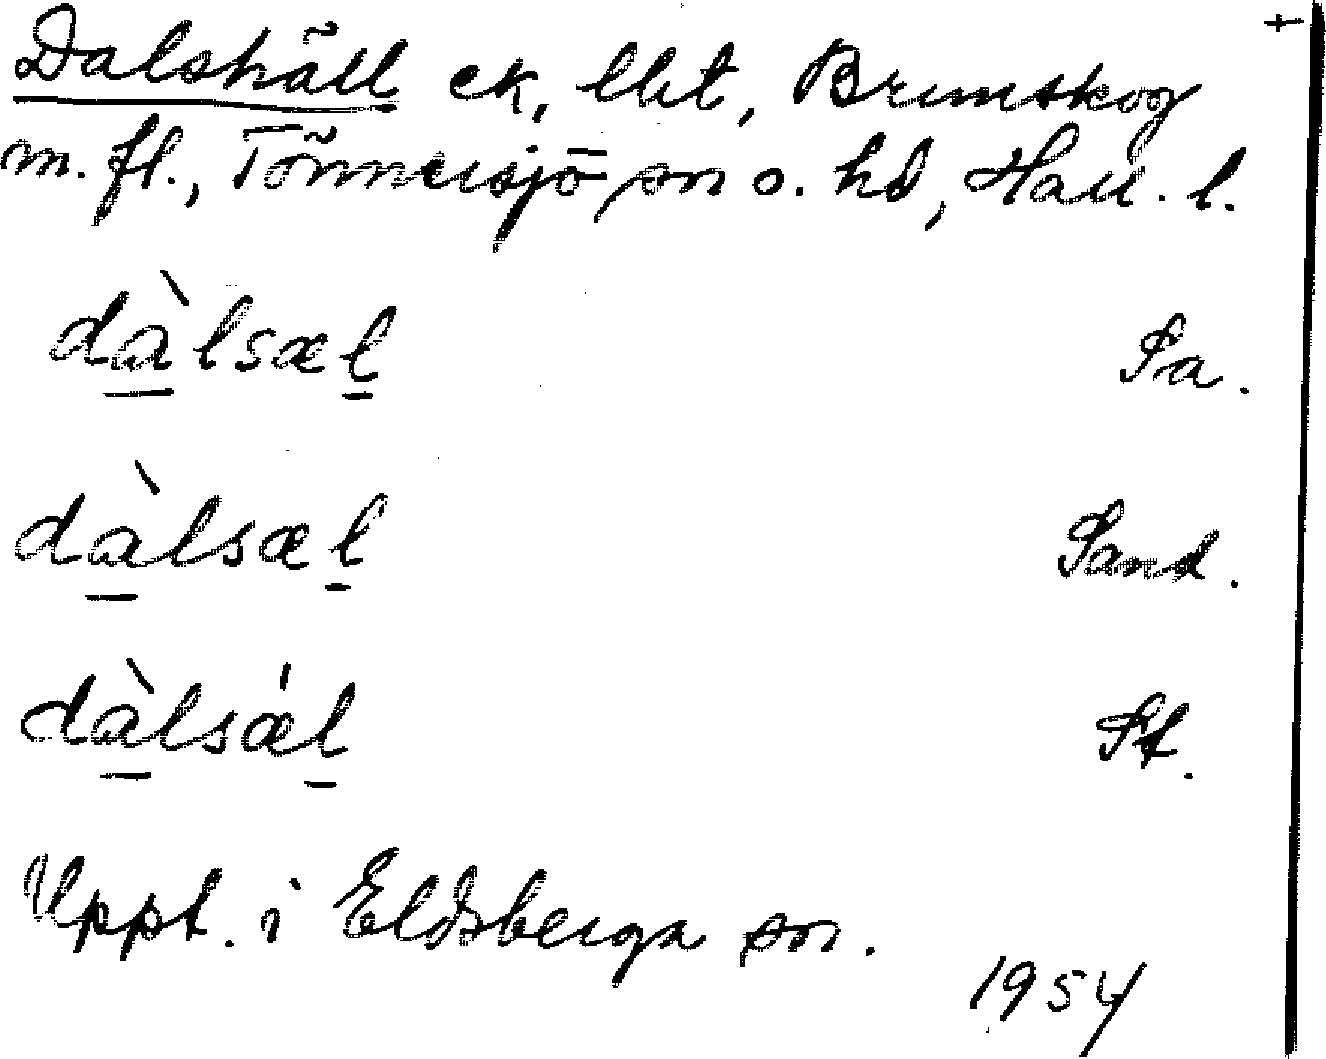 +
Dalshäll ek, lht, Brunskog
m. fl., Tönnersjö sn o. hd, Hall. l.
dàlsæl Sa.
dàlsæl Sand.
dàlsǽl St.
Uppt. i Eldsberga sn.
1954